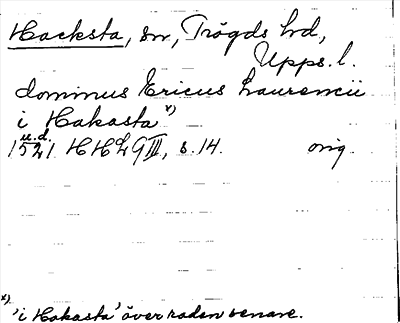 Hacksta, sn, Trögds hd,
Upps. l.
dominus Ericus Laurencii
i Hakasta x)
u.d.
1521 HHLG III, s. 14. orig.
x) 'i Hakasta' över raden senare.